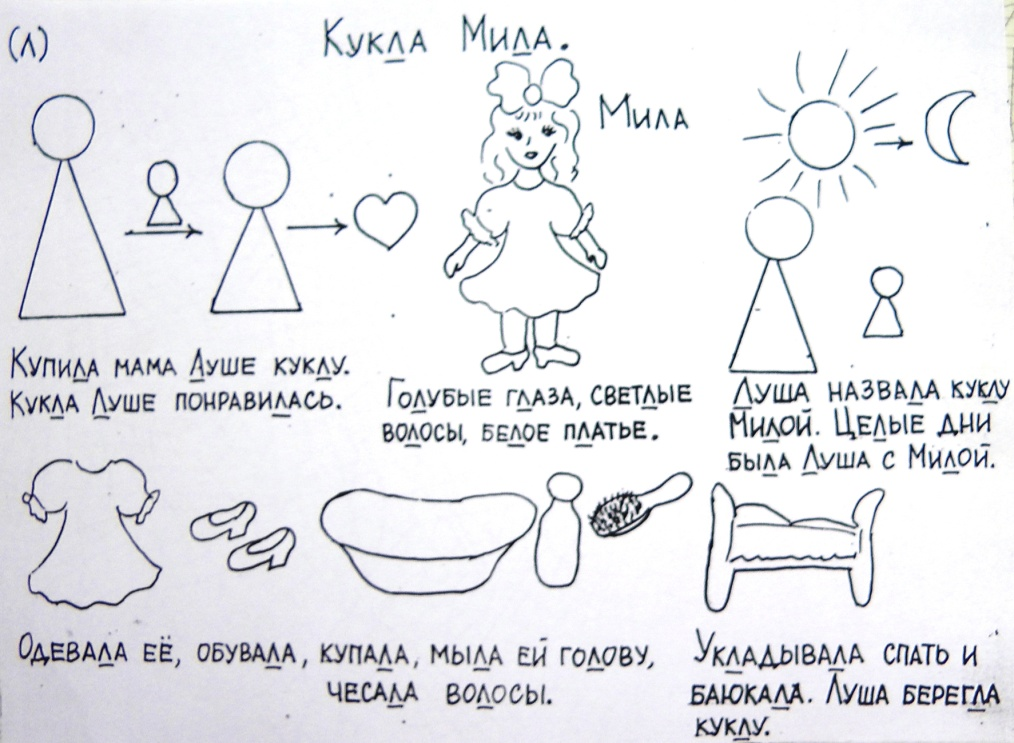 (Л)
Кукла Мила.
Мила
Купила мама Луше куклу.
Кукла Луше понравилась.
Голубые глаза, светлые
волосы, белое платье.
Луша назвала куклу
Милой. Целые дни
была Луша с Милой.
Одевала её, обувала, купала, мыла ей голову,
чесала волосы.
Укладывала спать и
баюкала. Луша берегла
куклу.